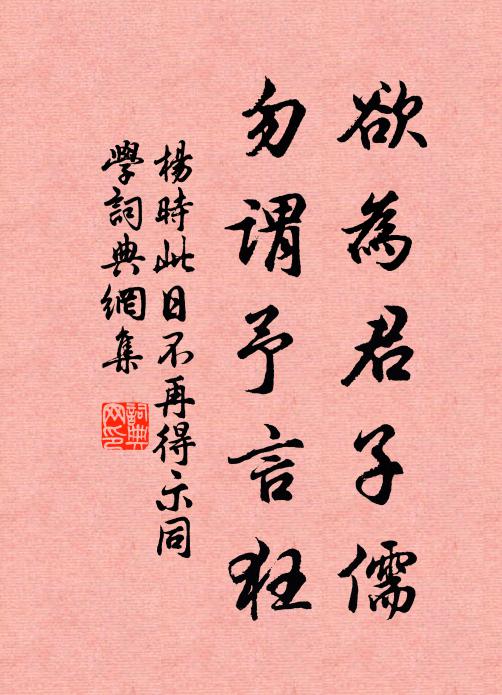 欲為君子儒
勿謂予言狂
楊時此日不再得示同
學詞典網集
詞典網印